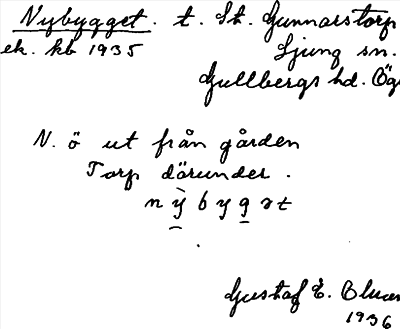 Nybygget. t. St. Gunnarstorp
ek. kb 1935 Ljung sn.
Gullbergs hd. Ög
N. ö ut från gården
Torp därunder.
nỳbygət
Gustaf E.
1936